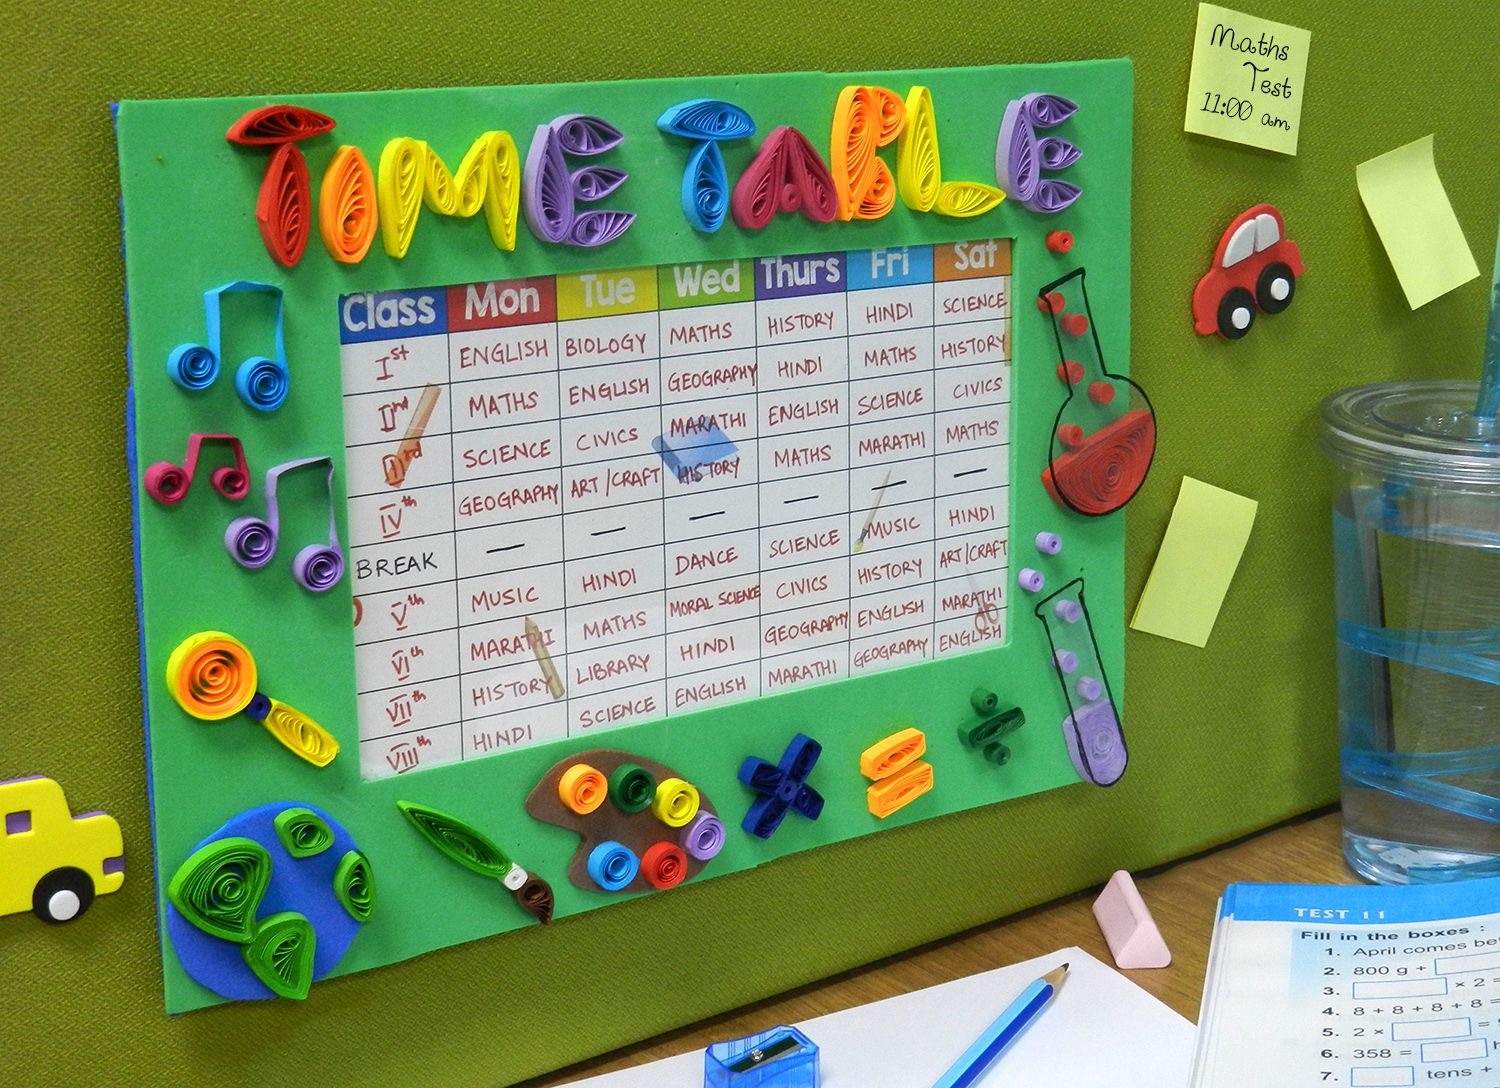 TIME TABLE
Class Mon Tue Wed Thurs Fri Sat
Ist ENGLISH BIOLOGY MATHS HISTORY HINDI SCIENCE
IInd MATHS ENGLISH GEOGRAPHY HINDI MATHS HISTORY
IIIrd SCIENCE CIVICS MARATHI ENGLISH SCIENCE CIVICS
IVth GEOGRAPHY ART/CRAFT HISTORY MATHS MARATHI MATHS
BREAK — — — — — —
Vth MUSIC HINDI DANCE SCIENCE MUSIC HINDI
VIth MARATHI MATHS MORAL SCIENCE CIVICS HISTORY ART/CRAFT
VIIth HISTORY LIBRARY HINDI GEOGRAPHY ENGLISH MARATHI
VIIIth HINDI SCIENCE ENGLISH MARATHI GEOGRAPHY ENGLISH
× = ÷
Maths
Test
11:00 am
TEST 11
Fill in the boxes :
1. April comes
2. 800 g +
3. × 2 =
4. 8 + 8 + 8 + 8 =
5. 2 × =
6. 358 =
7. tens +